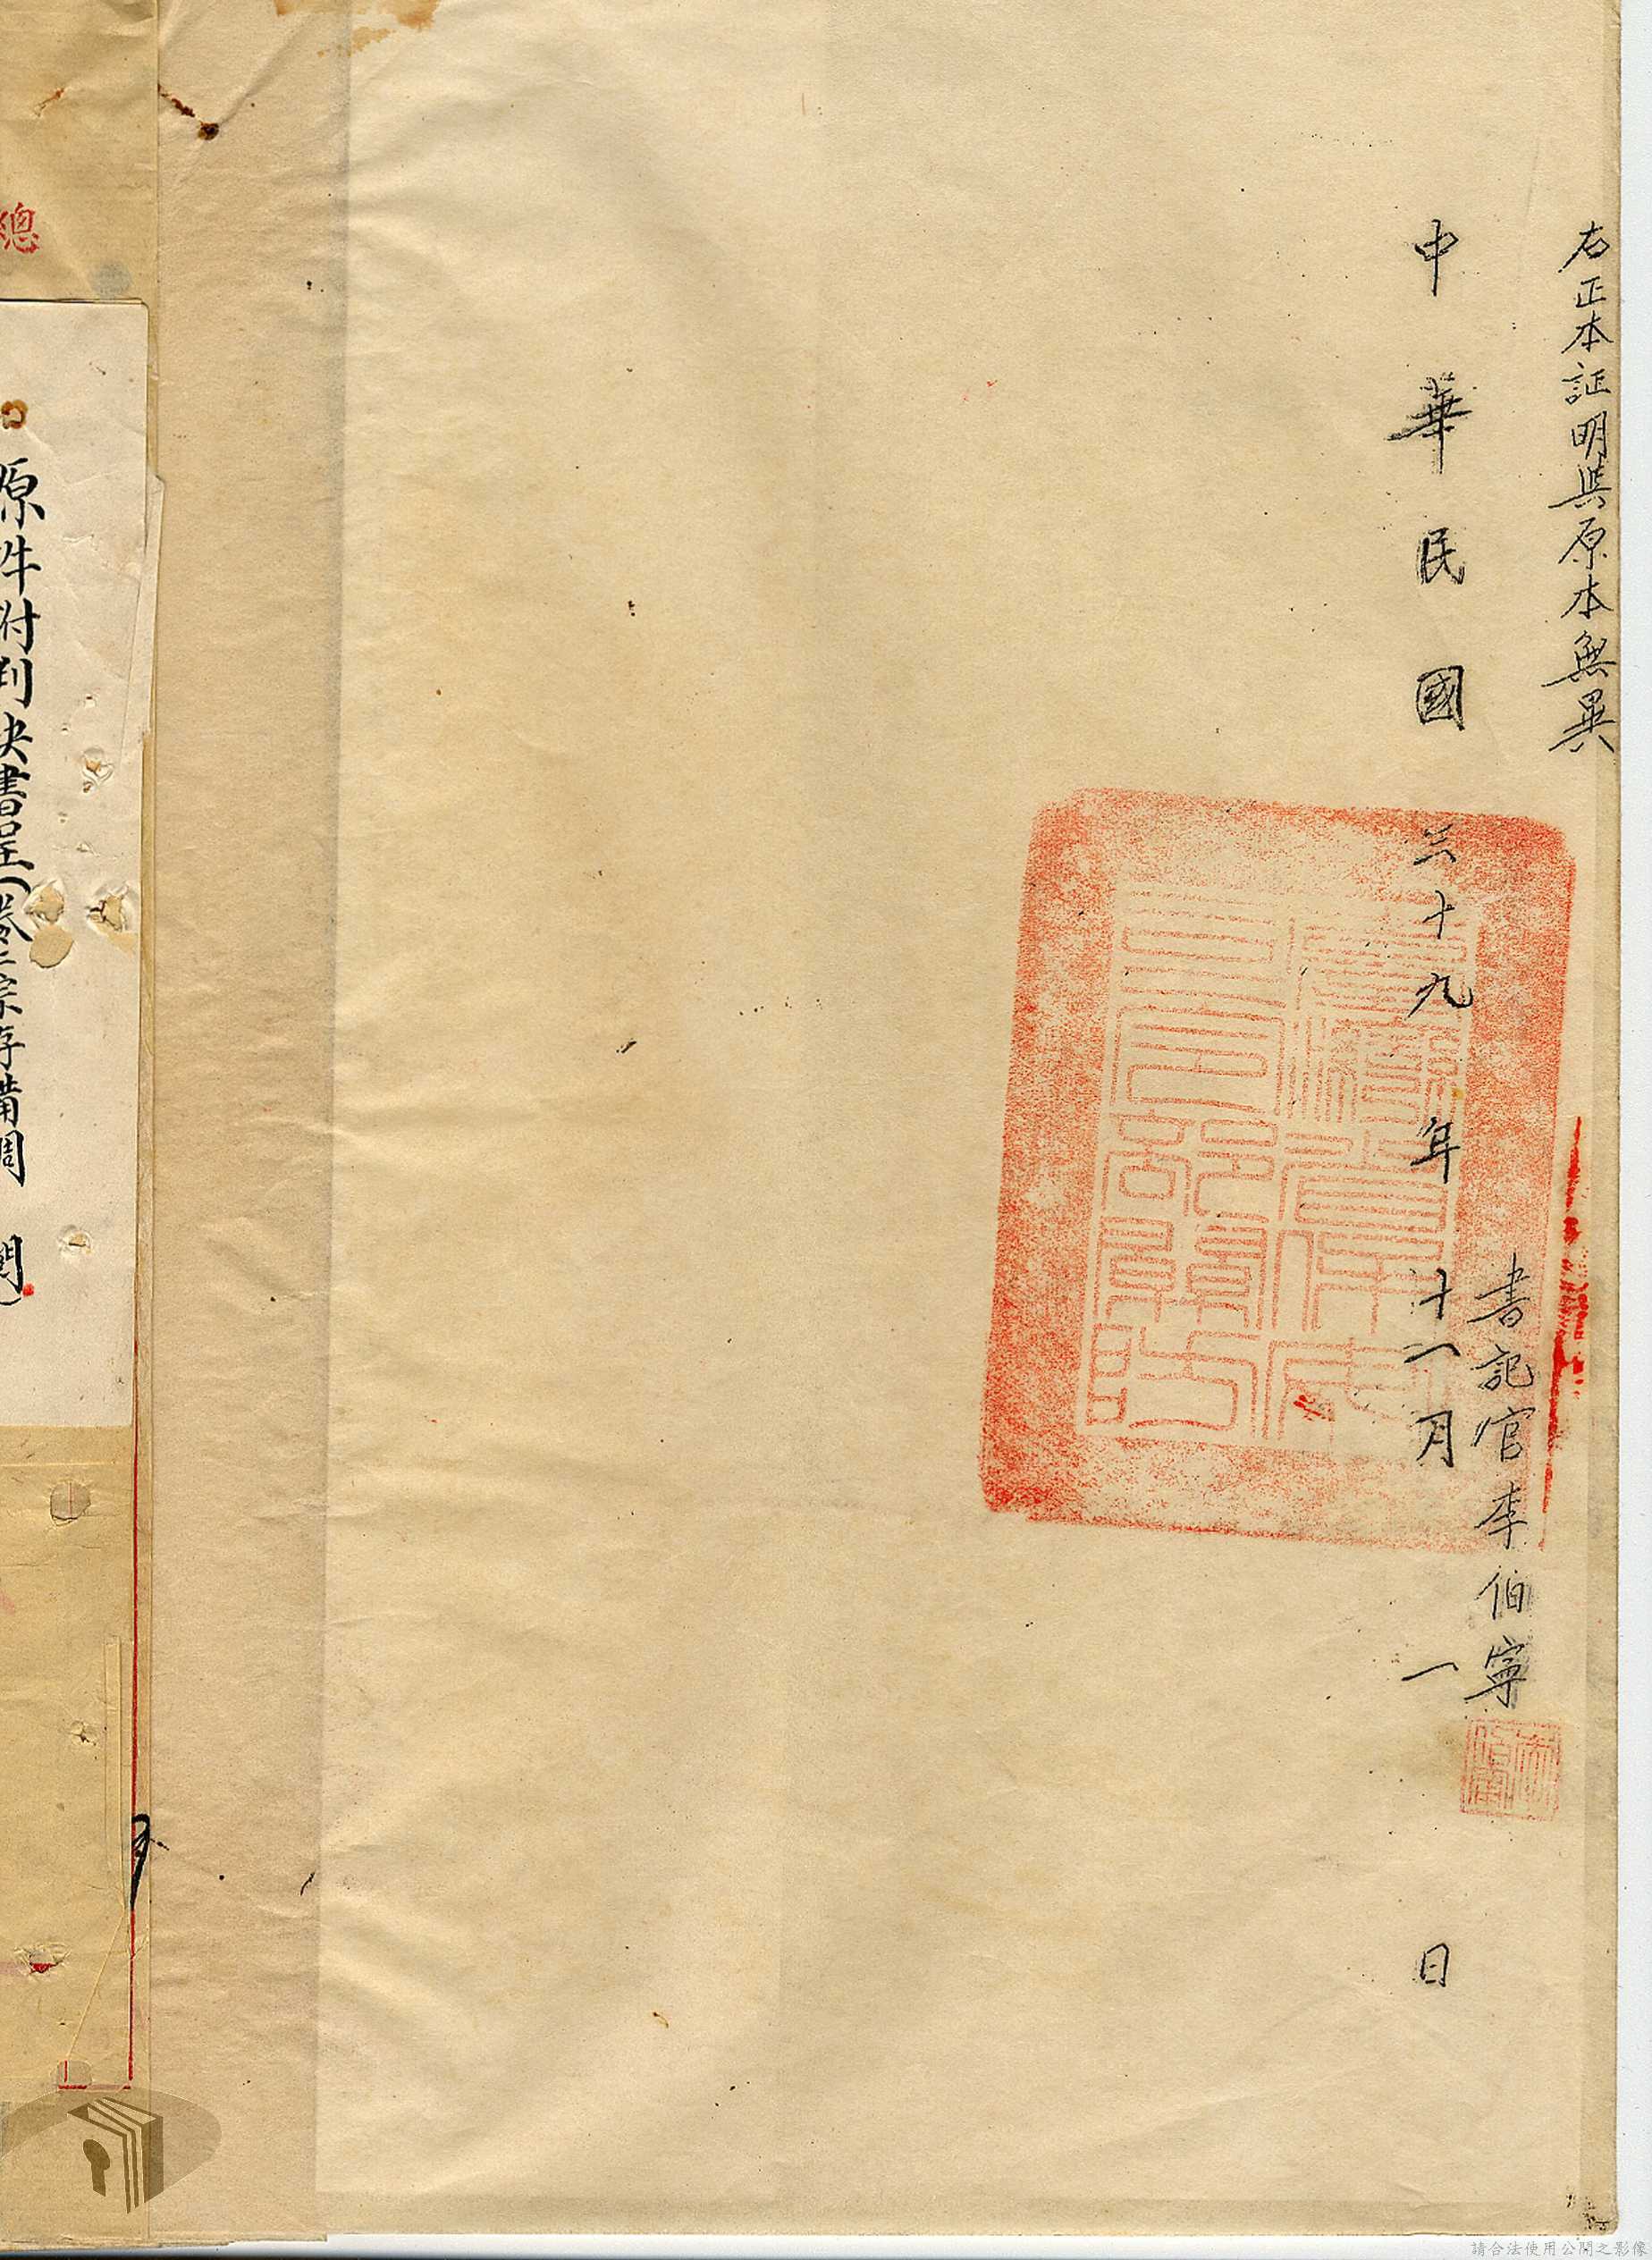 右正本証明與原本無異
書記官李伯寧
中華民國三十九年十一月一日
總
原件附判決書呈(卷二宗存備調閱)
請合法使用公開之影像